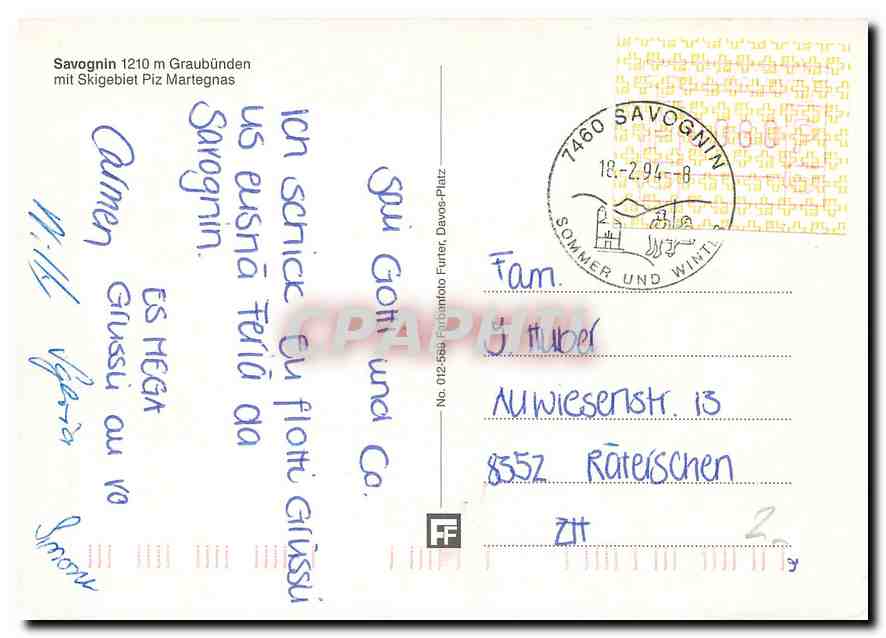 Savognin 1210 m Graubünden
mit Skigebiet Piz Martegnas
Sali Gotti und Co.
Ich schick eu flotti Grüssli
us eusnä Feriä da
Savognin.
ES MEGA
Grüssli au vo
Carmen
Valeria
Simona
No. 012-589 Farbenfoto Furter, Davos-Platz
FF
7460 SAVOGNIN
18.-2.94--8
SOMMER UND WINTE
Fam.
J. Huber
Auwiesenstr. 13
8352 Räterschen
ZH
2.-
CPAPHIL